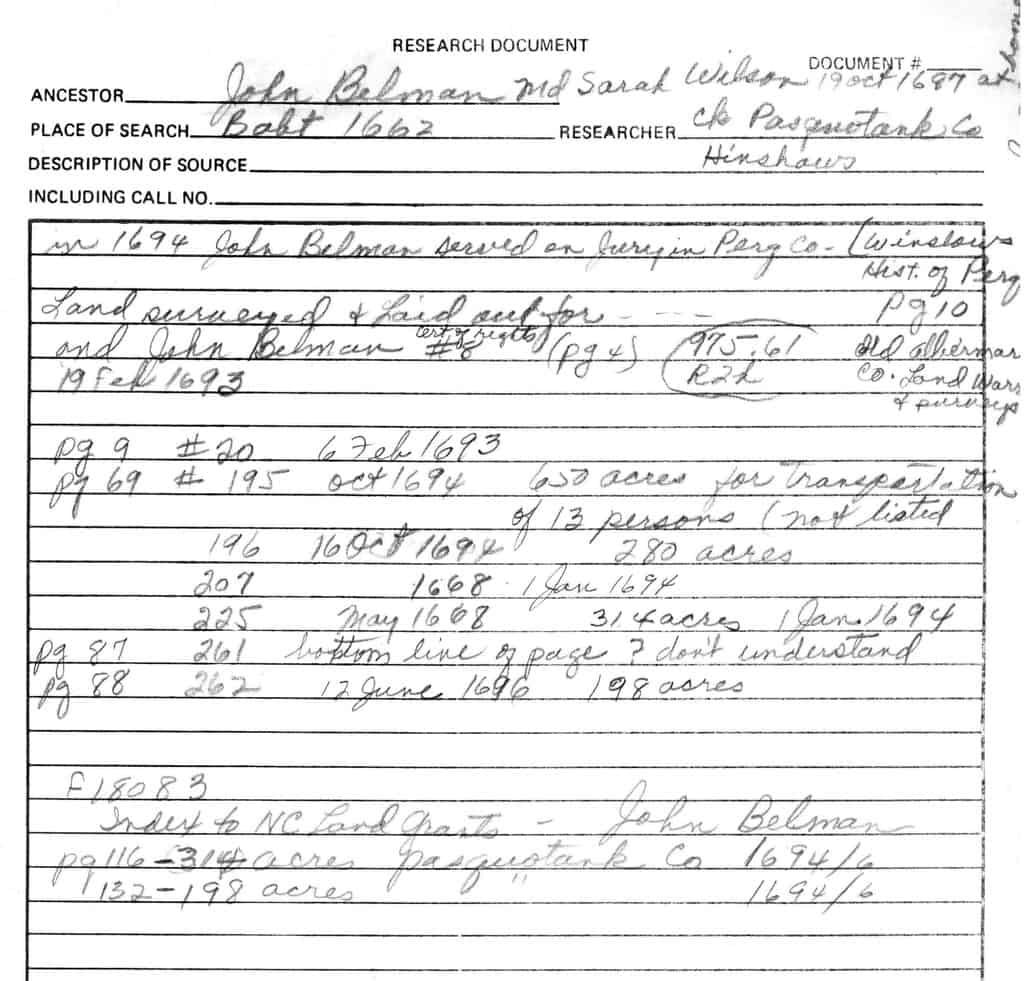 RESEARCH DOCUMENT
DOCUMENT #
ANCESTOR John Belman md Sarah Wilson 19 Oct 1687 at
PLACE OF SEARCH Babt 1662 RESEARCHER ck Pasquotank Co
DESCRIPTION OF SOURCE Hinshaws
INCLUDING CALL NO.
in 1694 John Belman served on Jury in Perq Co - (Winslows
Hist. of Perq
Land surveyed & Laid out for - - - - pg 10
and John Belman cert of rights #8 (pg 4) 975.61 Old Albermar
19 Feb 1693 R2h Co. Land Wars
& surveys
pg 9 #20 6 Feb 1693
pg 69 # 195 Oct 1694 650 acres for transportation
of 13 persons (not listed
196 16 Oct 1694 280 acres
207 1668 1 Jan 1694
225 May 1668 314 acres 1 Jan. 1694
pg 87 261 bottom line of page ? don't understand
pg 88 262 12 June 1696 198 acres
F18083
Index to NC Land Grants - John Belman
pg 116 - 314 acres Pasquotank Co 1694/6
132 - 198 acres " 1694/6